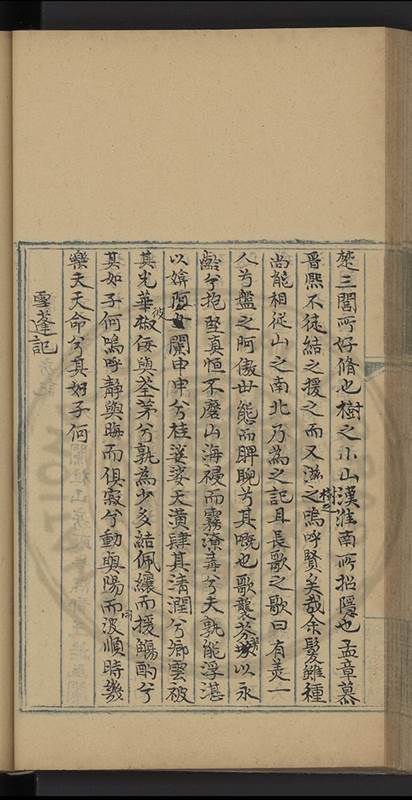 楚三閭所好脩也樹之小山漢淮南所招隱也孟章慕
晉熙不徒結之援之而又滋之樹之嗚呼賢矣哉余髮雖種
尚能相從山之南北乃為之記且長歌之歌曰有美一
人兮盤之阿傲世態而睥睨兮其嘅也歌襲芬以永
齡兮抱堅真恒不磨山海禄而霧潦毒兮夫孰能浮湛
以婥阿世蘭申申兮桂婆娑天潢肆其清潤兮鄉雲被
其光華彼椒佞與荃茅兮孰為少多結佩纕而援觴酌兮
其如子何嗚呼靜與晦而俱寂兮動與陽而同波順時幾
樂夫天命兮其如子何
雪蓬記